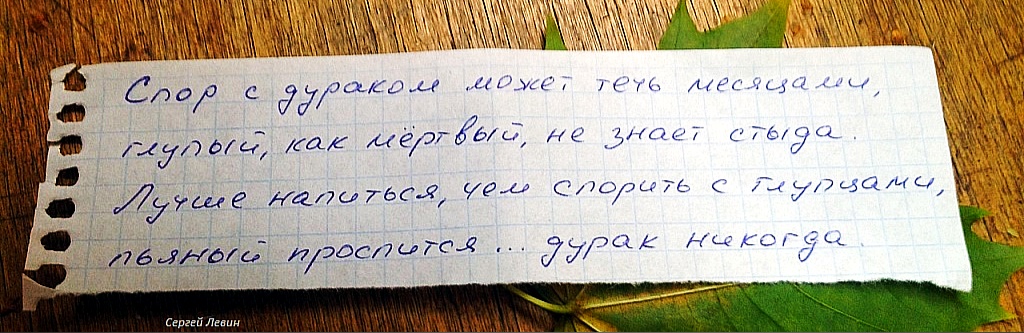 Спор с дураком может течь месяцами,
глупый, как мёртвый, не знает стыда.
Лучше напиться, чем спорить с глупцами,
пьяный проспится... дурак никогда.
Сергей Левин